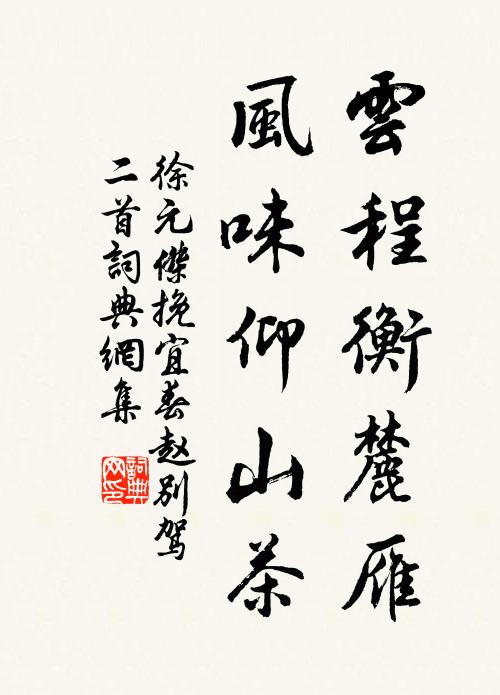 雲程衡麓雁
風味仰山茶
徐元傑挽宜春赵别驾
二首詞典網集
詞典網印